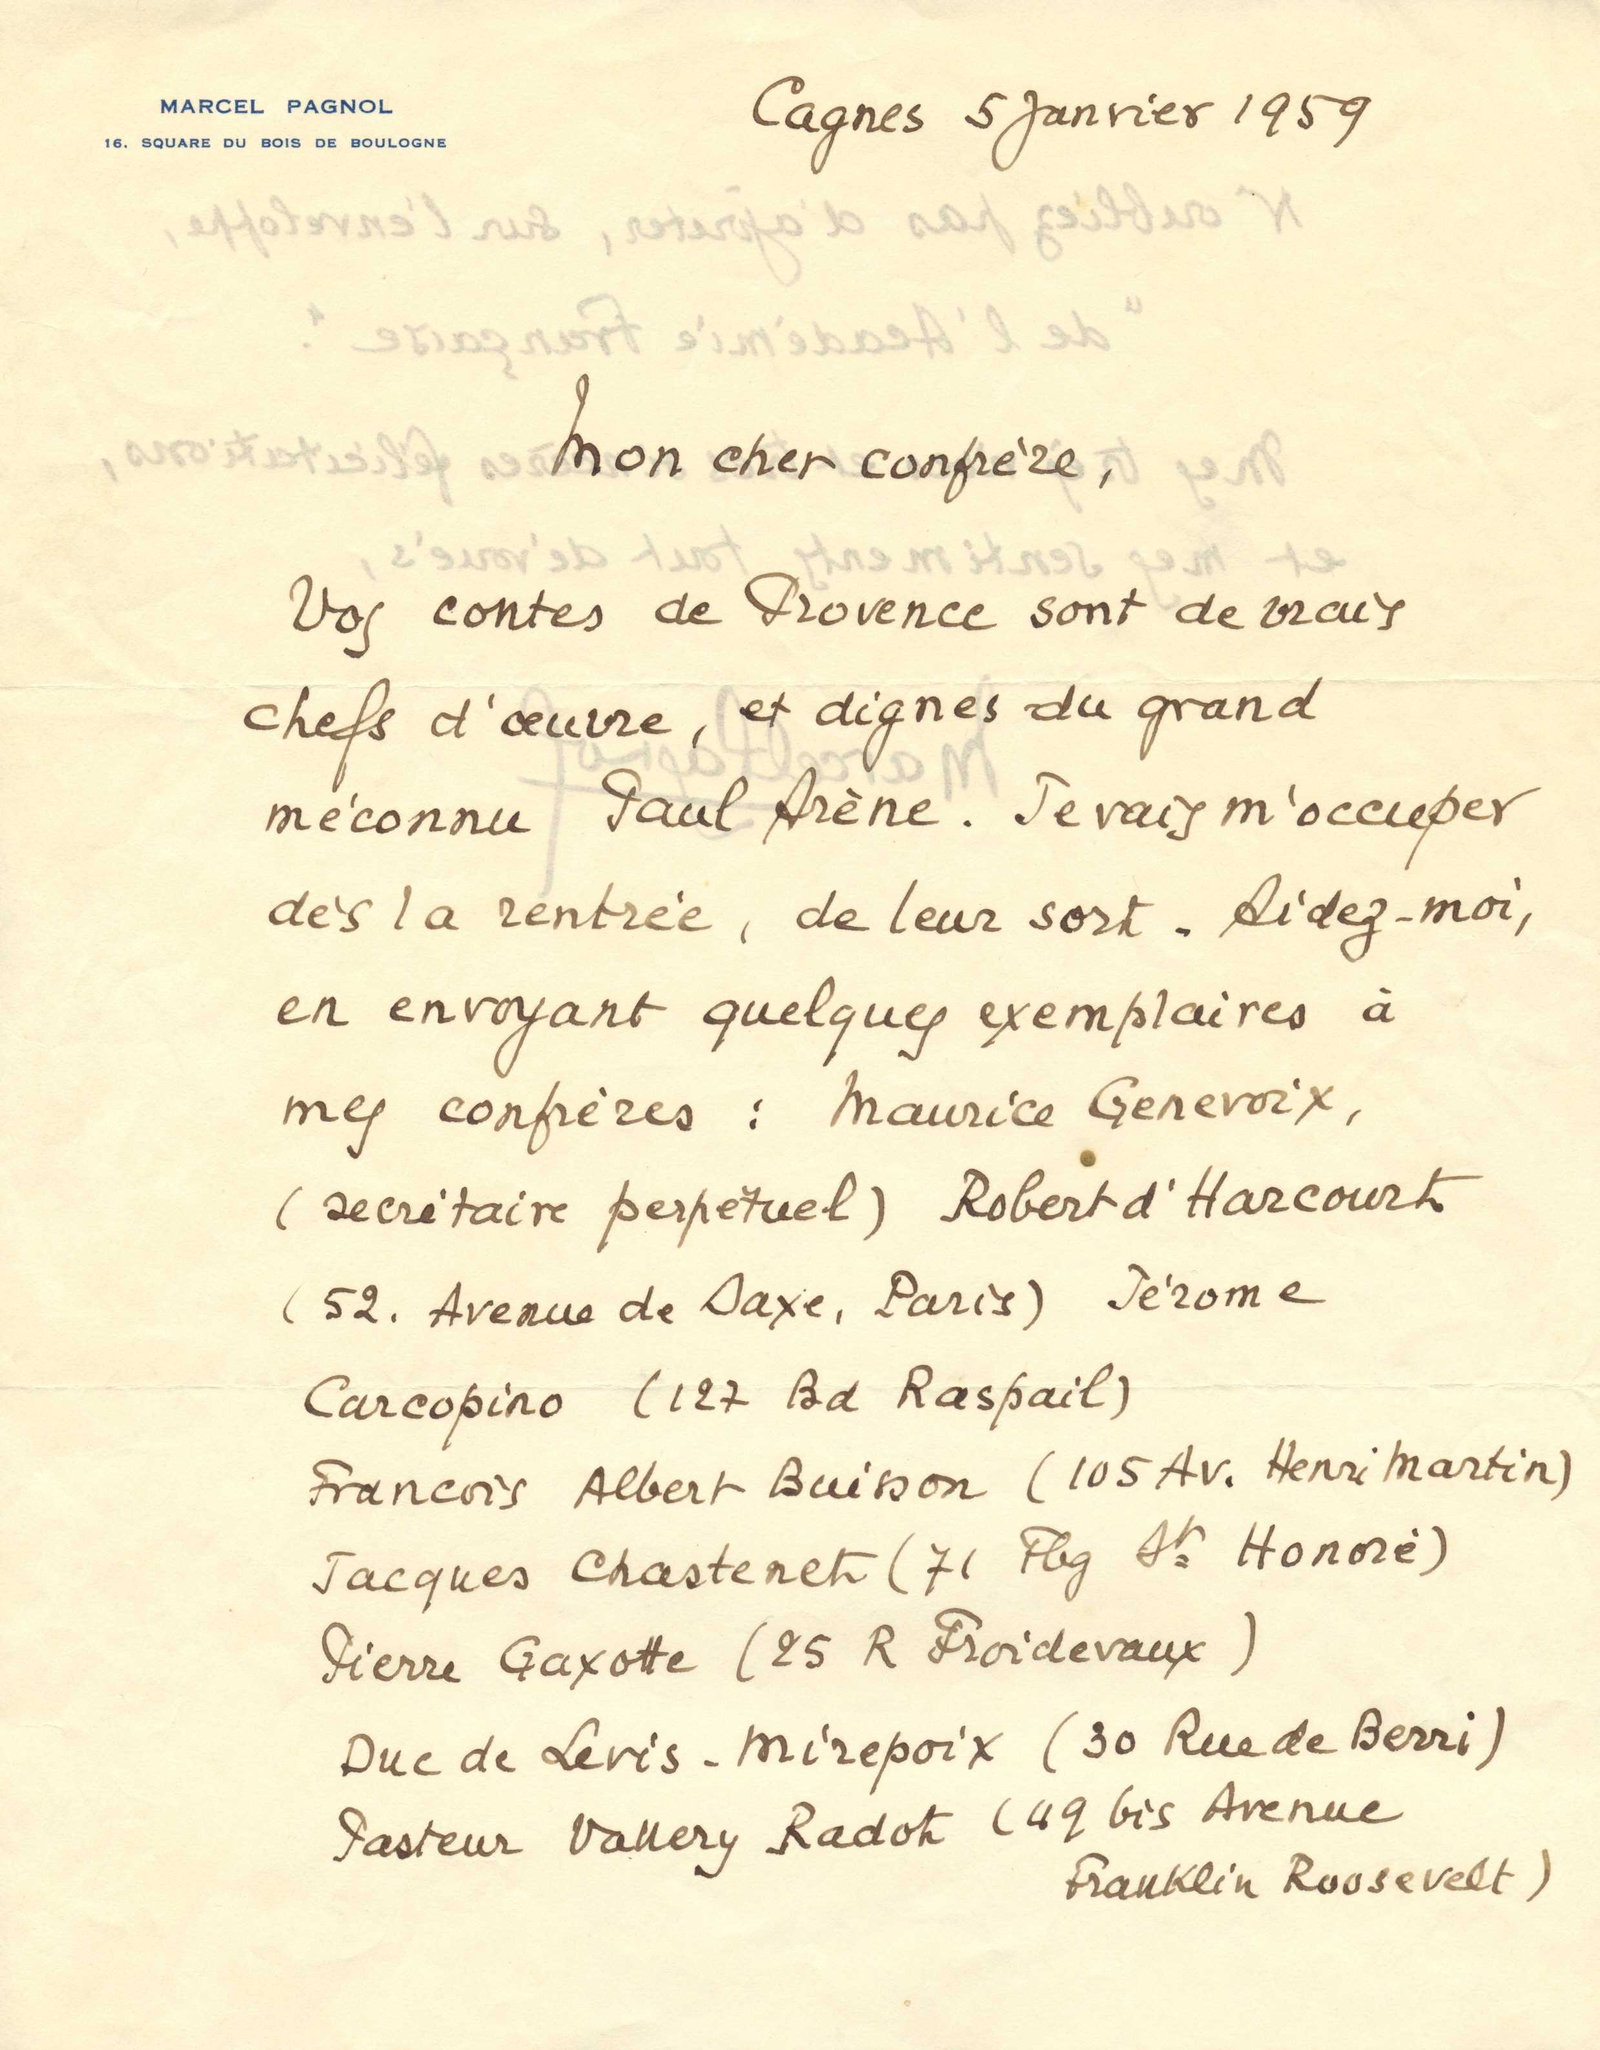 MARCEL PAGNOL
16. SQUARE DU BOIS DE BOULOGNE
Cagnes 5 Janvier 1959
Mon cher confrère,
Vos contes de Provence sont de vrais
chefs d'œuvre, et dignes du grand
méconnu Paul Arène. Je vais m'occuper
dès la rentrée, de leur sort. Aidez-moi,
en envoyant quelques exemplaires à
mes confrères : Maurice Genevoix,
(secrétaire perpétuel) Robert d'Harcourt
(52. Avenue de Saxe, Paris) Jérome
Carcopino (127 Bd Raspail)
Francois Albert Buisson (105 Av. Henri Martin)
Jacques Chastenet (71 Fbg St Honoré)
Pierre Gaxotte (25 R Froidevaux)
Duc de Levis-Mirepoix (30 Rue de Berri)
Pasteur Vallery Radot (49 bis Avenue
Franklin Roosevelt)
N'oubliez pas d'ajouter, sur l'enveloppe,
"de l'Académie Française".
Mes félicitations,
et mes sentiments tout dévoués,
Marcel Pagnol